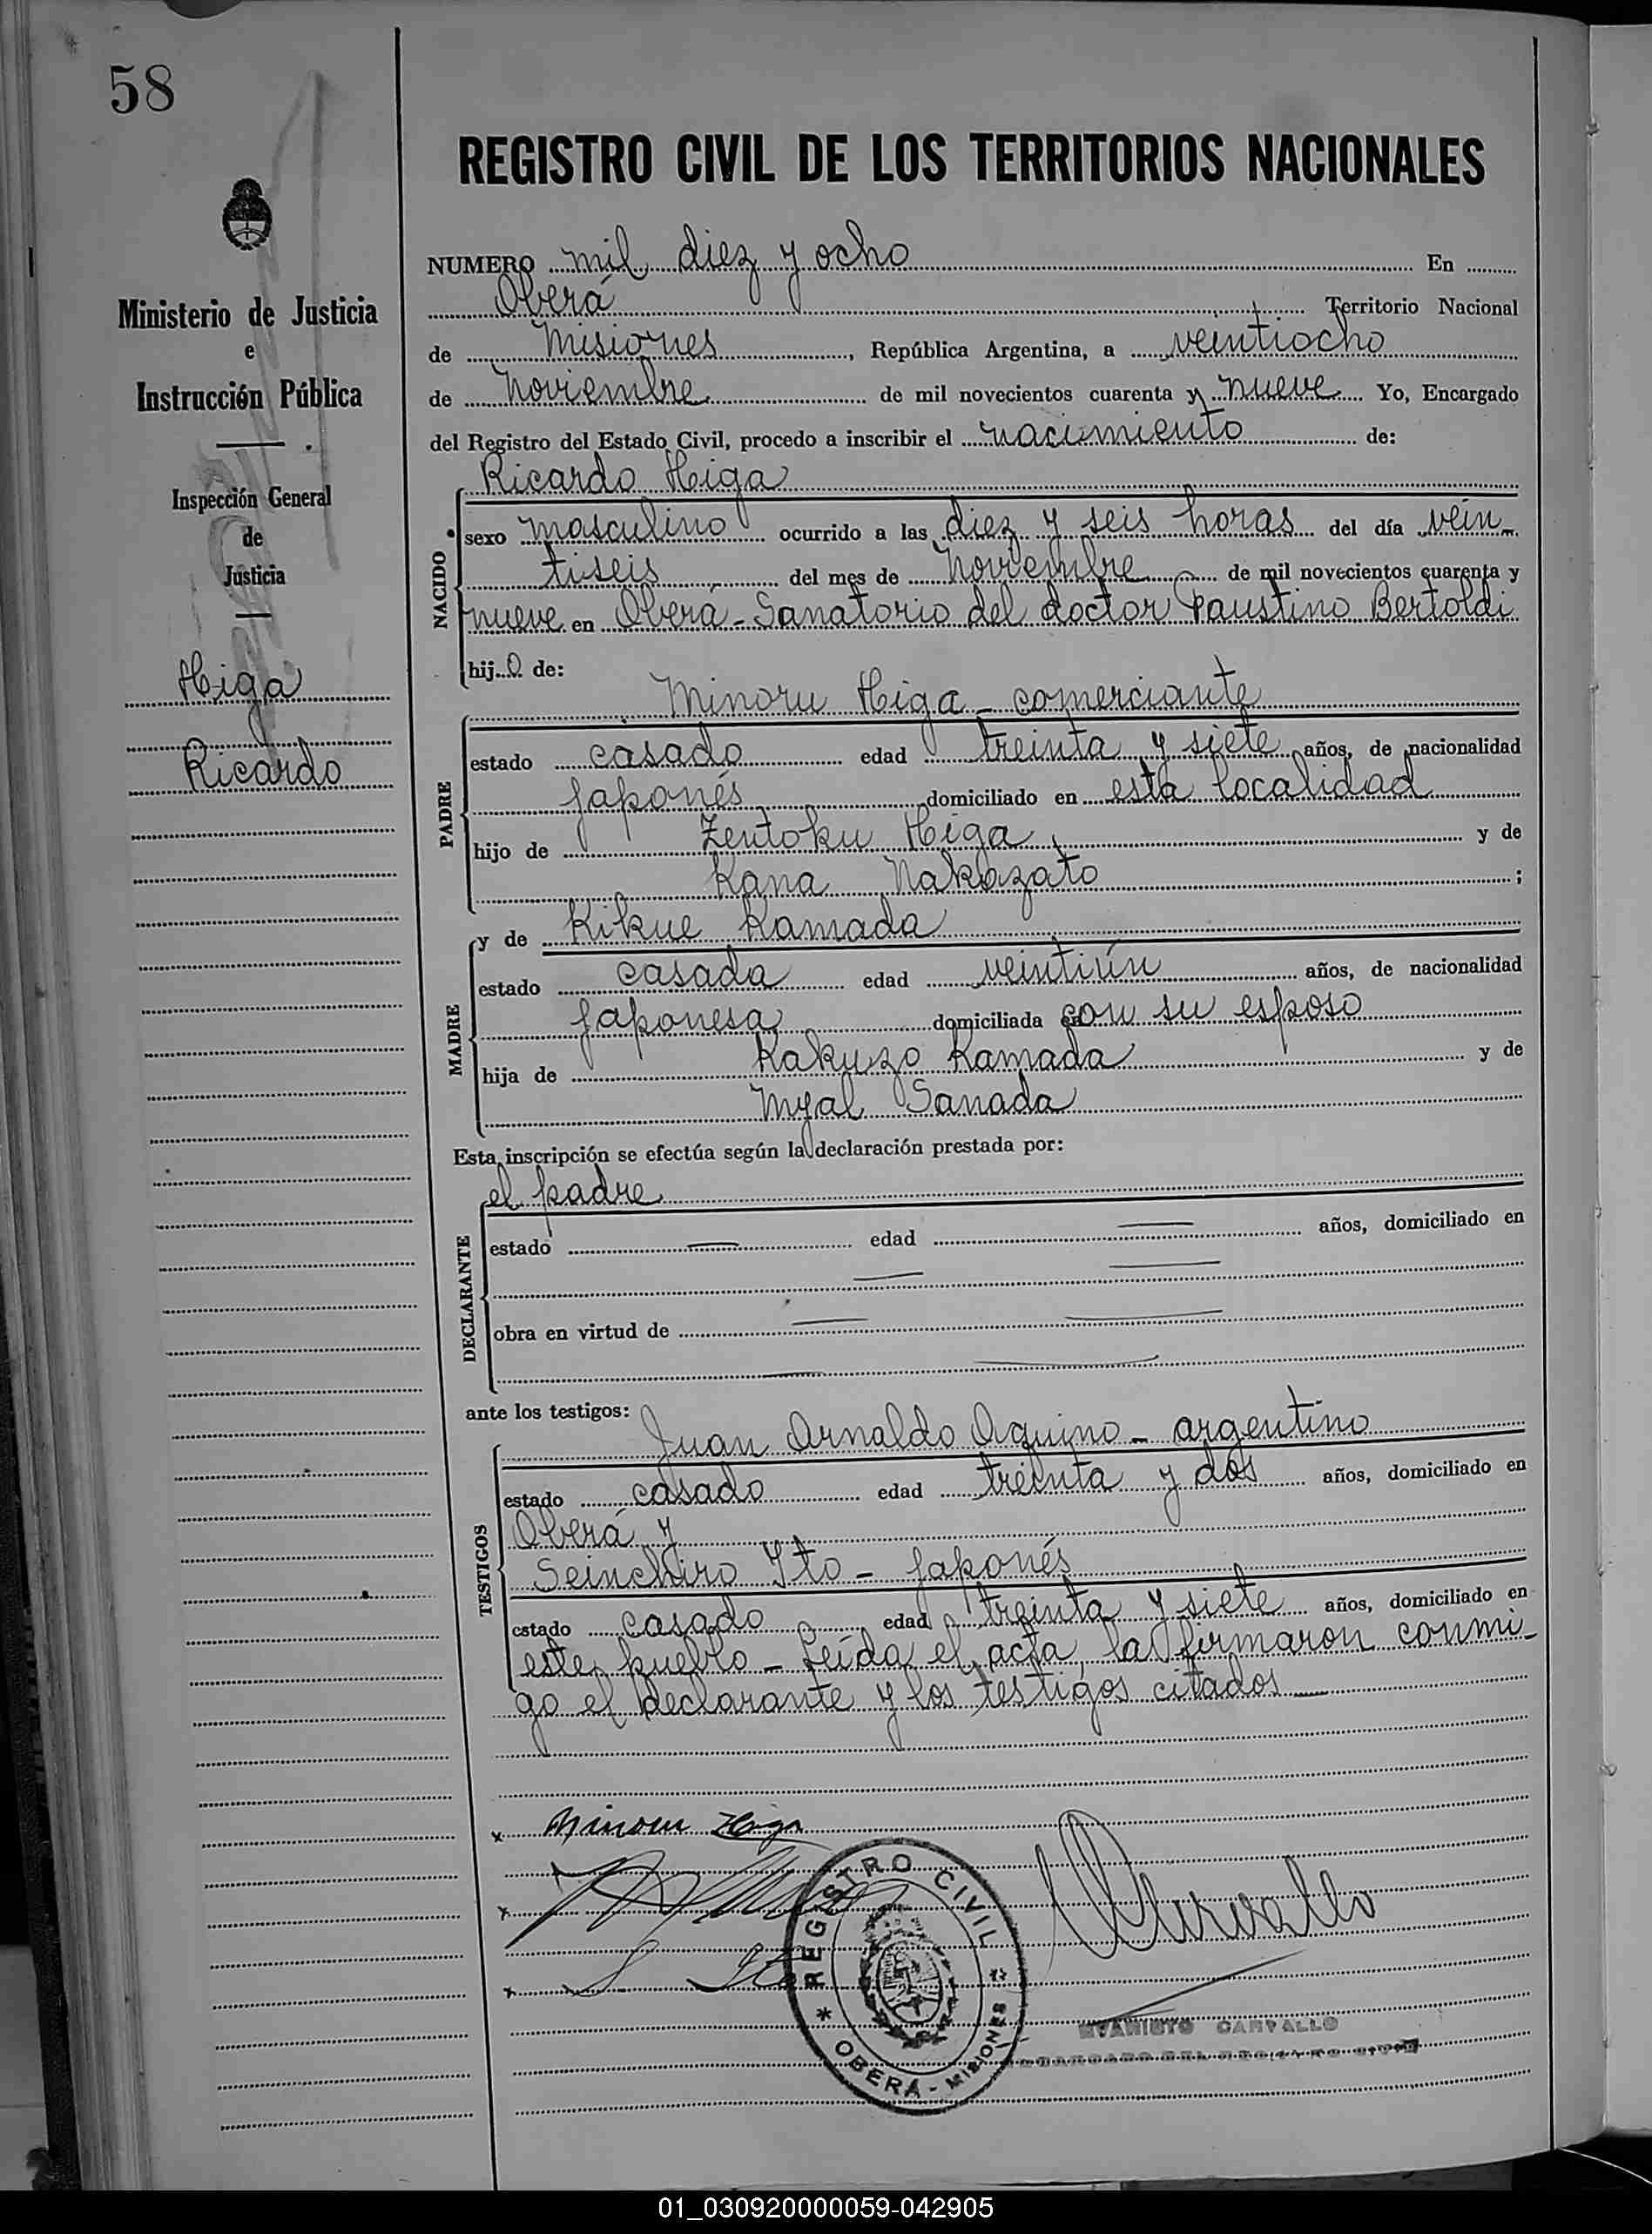 58
REGISTRO CIVIL DE LOS TERRITORIOS NACIONALES
Ministerio de Justicia
e
Instrucción Pública
Inspección General
de
Justicia
Higa
Ricardo
NUMERO mil diez y ocho En
Oberá Territorio Nacional
de Misiones, República Argentina, a veintiocho
de Noviembre de mil novecientos cuarenta y nueve Yo, Encargado
del Registro del Estado Civil, procedo a inscribir el nacimiento de:
NACIDO
Ricardo Higa
sexo masculino ocurrido a las diez y seis horas del día vein-
tiseis del mes de Noviembre de mil novecientos cuarenta y
nueve en Oberá - Sanatorio del doctor Faustino Bertoldi
hijo de:
PADRE
Minoru Higa - comerciante
estado casado edad treinta y siete años, de nacionalidad
japonés domiciliado en esta localidad
hijo de Zentoku Higa y de
Kana Nakazato ;
MADRE
y de Kikue Kamada
estado casada edad veintiún años, de nacionalidad
japonesa domiciliada con su esposo
hija de Kakuzo Kamada y de
Myal Sanada
Esta inscripción se efectúa según la declaración prestada por:
DECLARANTE
el padre
estado — edad — años, domiciliado en
obra en virtud de
ante los testigos:
TESTIGOS
Juan Arnaldo Aquino - argentino
estado casado edad treinta y dos años, domiciliado en
Oberá y
Seinchiro Yto - japonés
estado casado edad treinta y siete años, domiciliado en
este pueblo - Leída el acta, la firmaron conmi-
go el declarante y los testigos citados
x Minoru Higa
x
x S Ito
REGISTRO CIVIL
* OBERÁ - MISIONES
Carvallo
EVARISTO CARVALLO
ENCARGADO DEL REGISTRO CIVIL
01_030920000059-042905